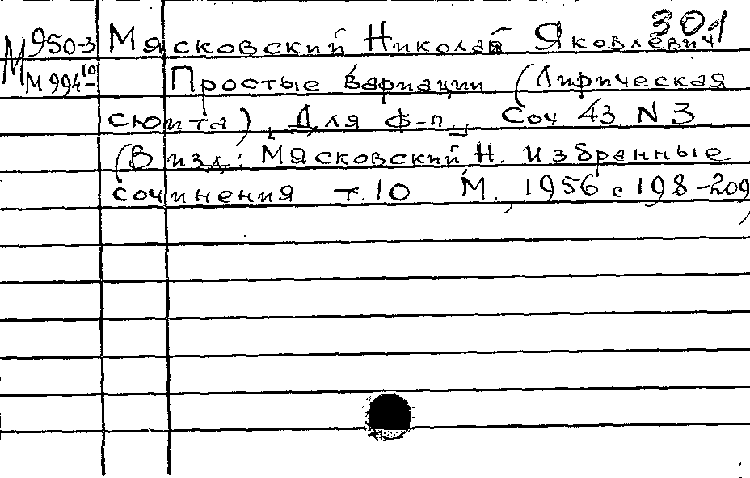 301
М 950-3 Мясковский Николай Яковлевич
М 994-10 Простые вариации (Лирическая
сюита). Для ф-п. Соч 43 N 3
(В изд: Мясковский Н. Избранные
сочинения т. 10 М., 1956 с 198-209)